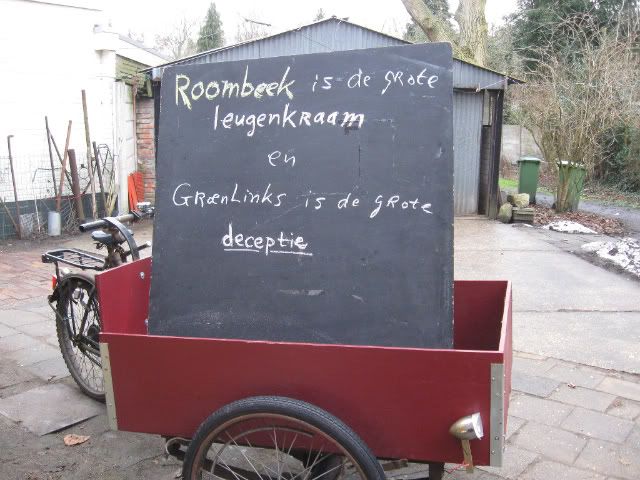 Roombeek is de grote
leugenkraam
en
GroenLinks is de grote
deceptie